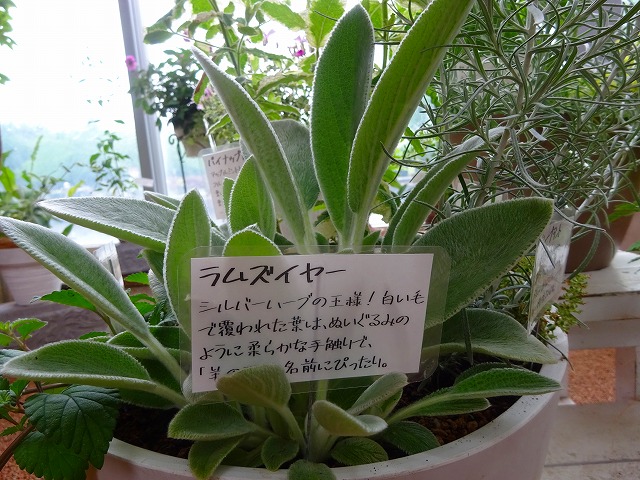 ラムズイヤー
シルバーハーブの王様！白い毛
で覆われた葉は、ぬいぐるみの
ように柔らかな手触りで、
「羊の 名前にぴったり。
パイナップ